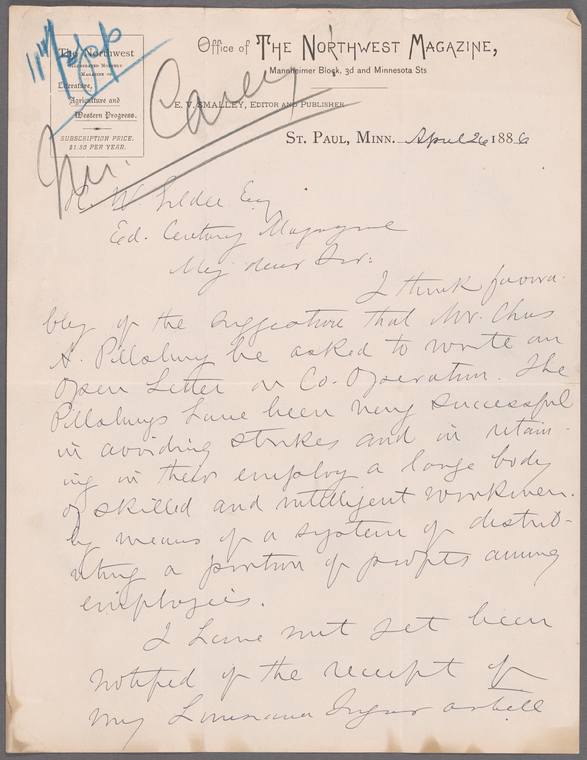 Office of The Northwest Magazine,
Mannheimer Block, 3d and Minnesota Sts
The Northwest
Illustrated Monthly
Magazine of
Literature,
Agriculture and
Western Progress.
SUBSCRIPTION PRICE.
$1.50 PER YEAR.
E. V. Smalley, Editor and Publisher
Mr. Carey
St. Paul, Minn. April 26 1886
R. W. Gilder Esq
Ed. Century Magazine
My dear Sir:
I think favora-
bly of the suggestion that Mr. Chas
A. Pillsbury be asked to write an
Open Letter on Co-Operation. The
Pillsburys have been very successful
in avoiding strikes and in retain-
ing in their employ a large body
of skilled and intelligent workmen
by means of a system of distrib-
uting a portion of profits among
employees.
I have not yet been
notified of the receipt of
my Louisiana Sugar article